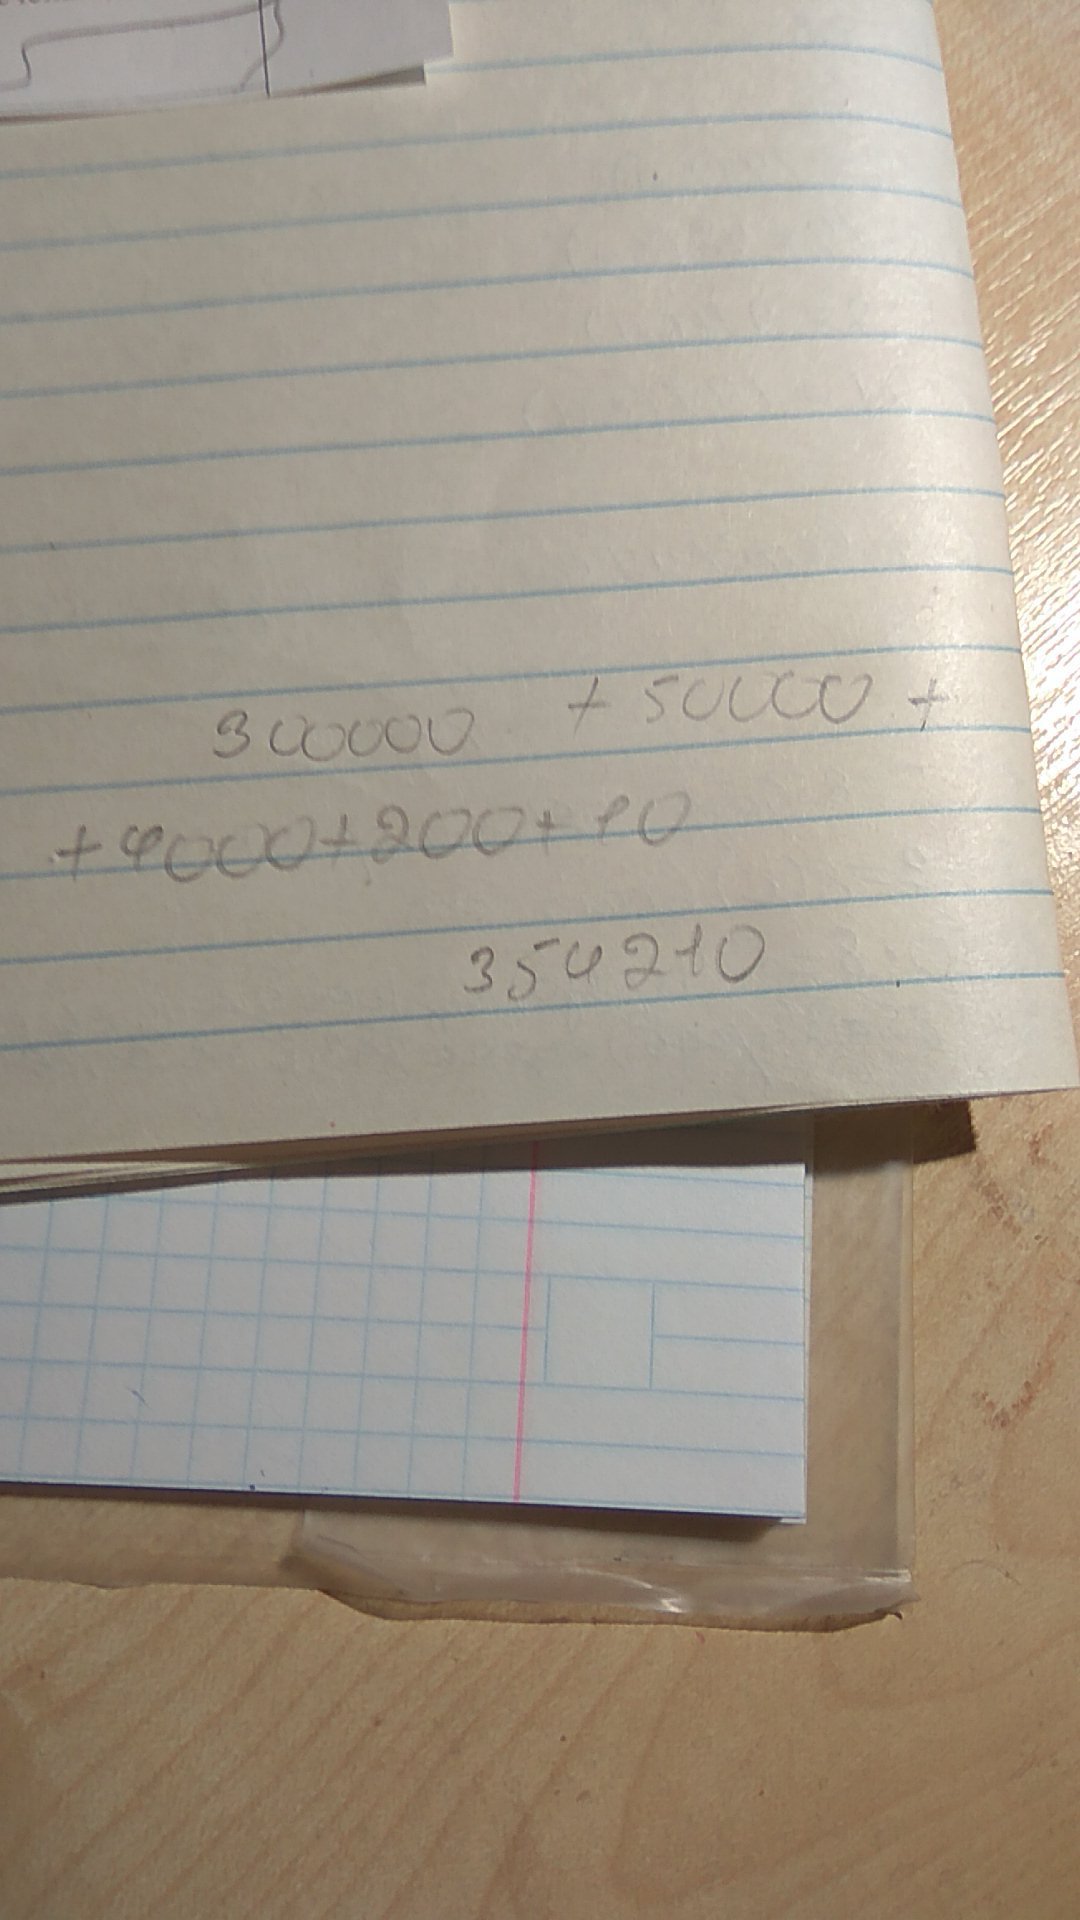 300000 + 50000 +
+4000+200+10
354210